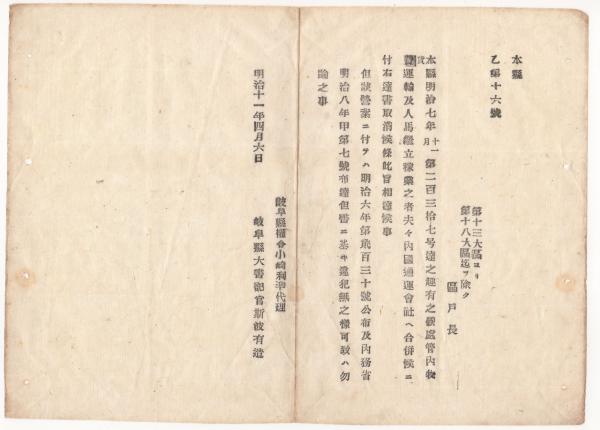 本縣
乙第十六號
第十三大區ヨリ
第十八大區迄ヲ除ク
區戸長
本縣明治七年十一月第二百三拾七号達之趣有之候處管內物
貨運輸及人馬繼立稼業之者夫々內國通運會社ヘ合併候ニ
付右達書取消候條此旨相達候事
但該營業ニ付テハ明治六年第貳百三十號公布及內務省
明治八年甲第七號布達但書ニ基キ違犯無之樣可致ハ勿
論之事
明治十一年四月六日
岐阜縣權令小崎利準代理
岐阜縣大書記官斯波有造